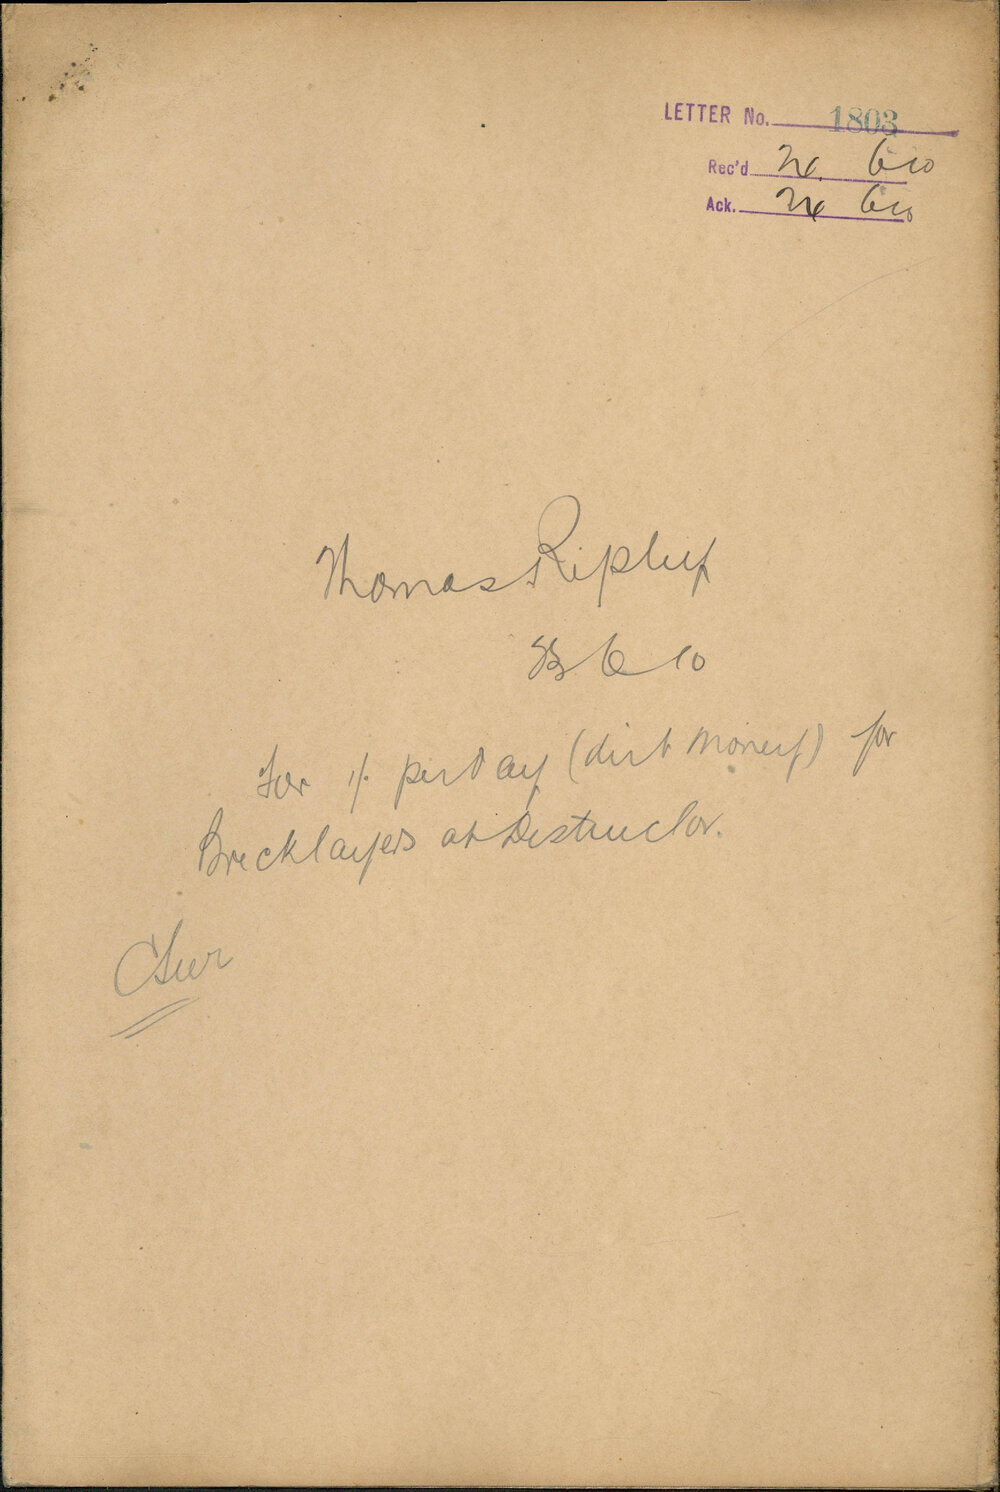 LETTER No. 1803
Rec'd 24. 6 10
Ack. 24 6 10
Thomas Ripley
23 6 10
For 1/. per Day (dirt money) for
Bricklayers at Destructor.